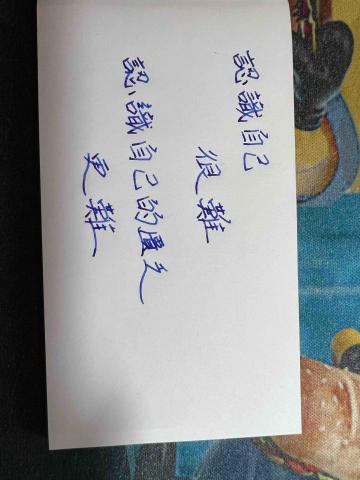 認識自己
很難
認識自己的匱乏
更難